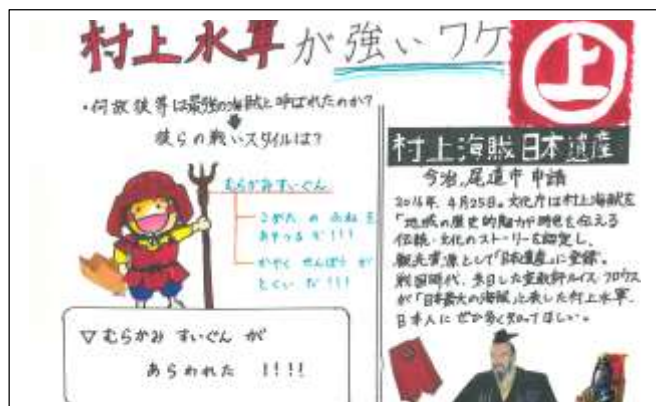 村上水軍が強いワケ
上
・何故彼等は最強の海賊と呼ばれたのか?
彼らの戦いスタイルは?
むらかみすいぐん
こがた の ふねを
あやつる ぞ!!!
かやく せんぽう が
とくい だ!!!
▽むらかみ すいぐん が
あらわれた !!!!
村上海賊日本遺産
今治、尾道市 申請
2016年、4月25日。文化庁は村上海賊を
「地域の歴史的魅力や特色を伝える
伝統・文化のストーリーを認定し、
観光資源として「日本遺産」に登録。
戦国時代、来日した宣教師ルイス・フロイス
が「日本最大の海賊」と表した村上水軍、
日本人にぜひ多く知ってほしい。